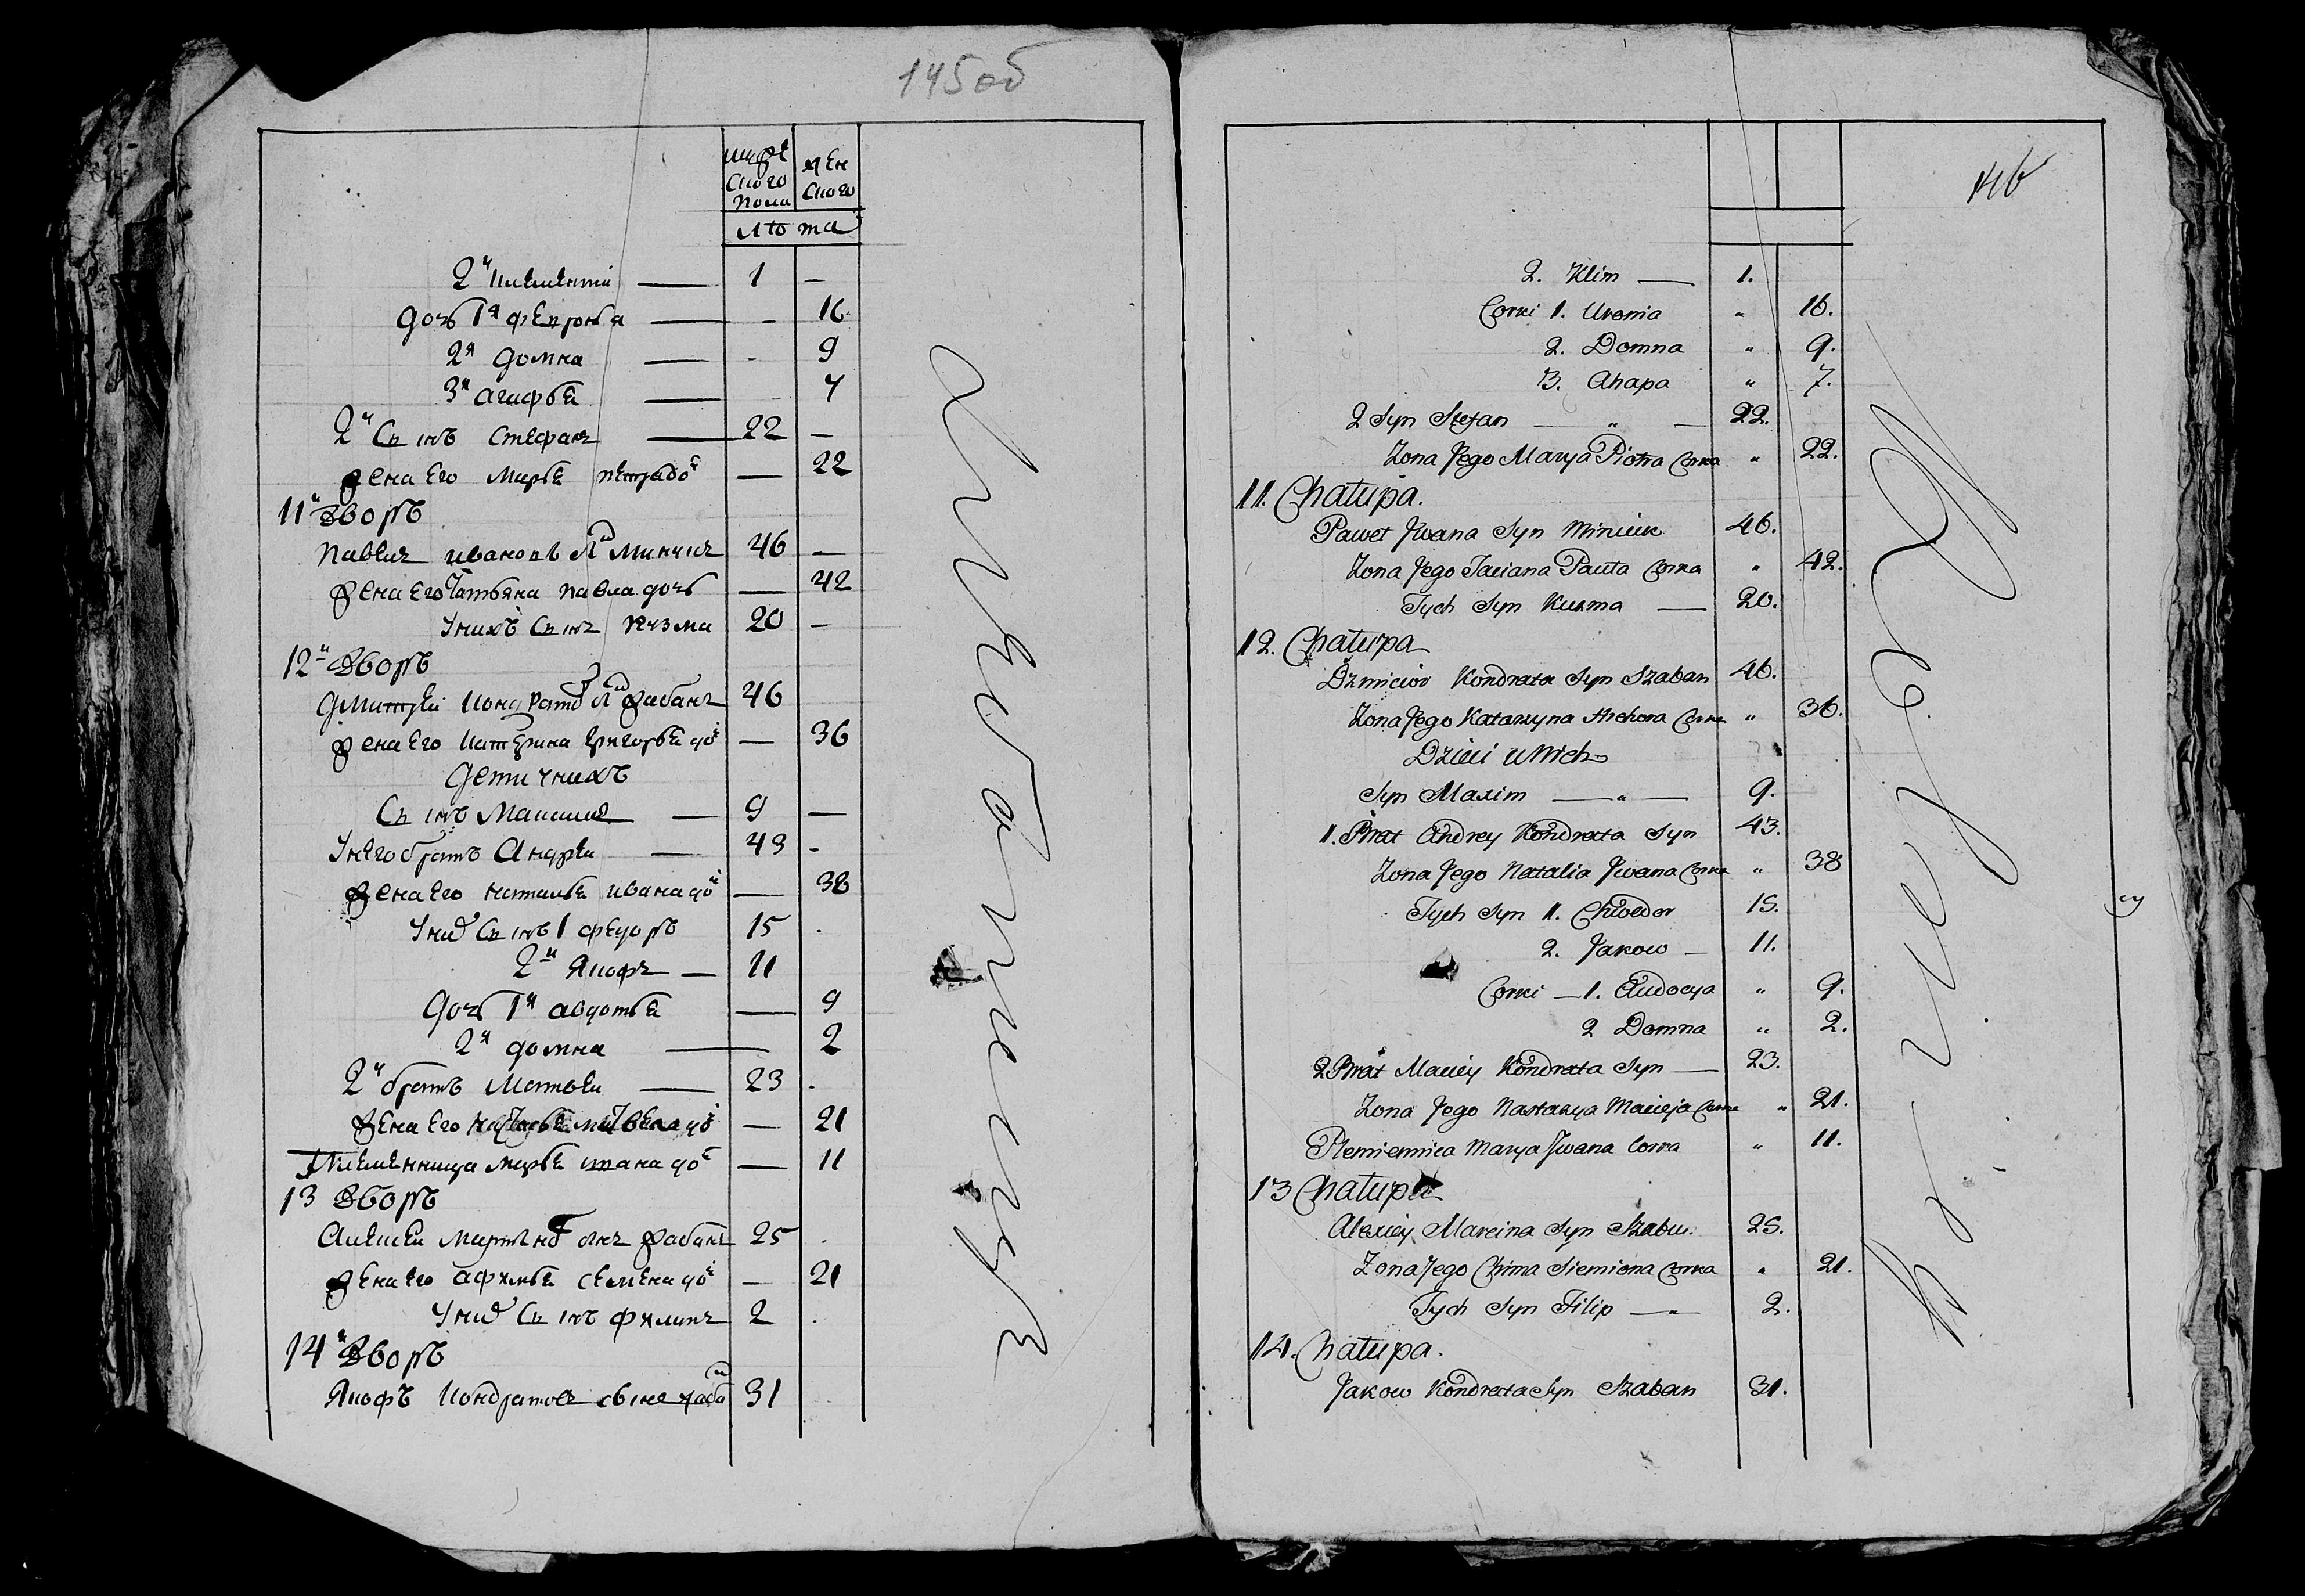 145об
мужe
ского
пола
жен
ского
лѣта
2й Климентiй — 1 —
дочь 1я Февронья — - 16
2я Домна — - 9
3я Агафьа — 7
2й Сынъ Стефанъ — 22 —
жена Его Марьа Петрадоч — 22
11й Дворъ
Павелъ Ивановъ Минчикъ 46 —
жена Его Татьяна Павла дочь — 42
Унихъ Сынъ Кузма 20 —
12й Дворъ
Дмитрей Кондратов Жабанъ 46
жена Его Катерина Григорьа до — 36
Дети Унихъ
Сынъ Максимъ — 9 —
Унего братъ Андрей — 43 -
жена Его Наталья Ивана до — 38
Уних Сынъ 1 Федоръ 15 .
2й Якофъ — 11
Дочь 1я Авдотья — 9
2я Домна — 2
2й братъ Матвей — 23 .
жена Его — 21
Племянница Марья Ивана до — 11
13 Дворъ
Алексей Мартинов Жабанъ 25 .
жена Его Афимья Семена до — 21
Уних Сынъ Филипъ 2 .
14й Дворъ
Якофъ Кондратов сынъ Жаба 31
146
2. Klim — 1.
Corki 1. Urania " 16.
2. Domna " 9.
3. Ahapa " 7.
2 Syn Stefan — " — 22.
Zona Jego Marya Piotra Corka " 22.
11. Chatupa.
Paweł Jwana Syn Minczik 46.
Zona Jego Taciana Pawła Corka " 42.
Tych Syn Kuzma — 20.
12. Chatupa
Dzmicier Kondrata Syn Szaban 46.
Zona Jego Katarzyna Hrehora Corka " 36.
Dzieci u Nich
Syn Maxim — " — 9.
1. Brat Andrey Kondrata Syn 43.
Zona Jego Natalia Jwana Corka " 38
Tych Syn 1. Chwedor 15.
2. Jakow — 11.
Corki — 1. Audocya " 9.
2 Domna " 2.
2 Brat Maciey Kondrata Syn — 23.
Zona Jego Nastazya Macieja Corka " 21.
Plemiennica Marya Jwana Corka " 11.
13 Chatupa
Alexiey Marcina Syn Szaban 25.
Zona Jego Chima Siemiona Corka " 21.
Tych Syn Filip — 2.
14. Chatupa.
Jakow Kondrata Syn Szaban 31.